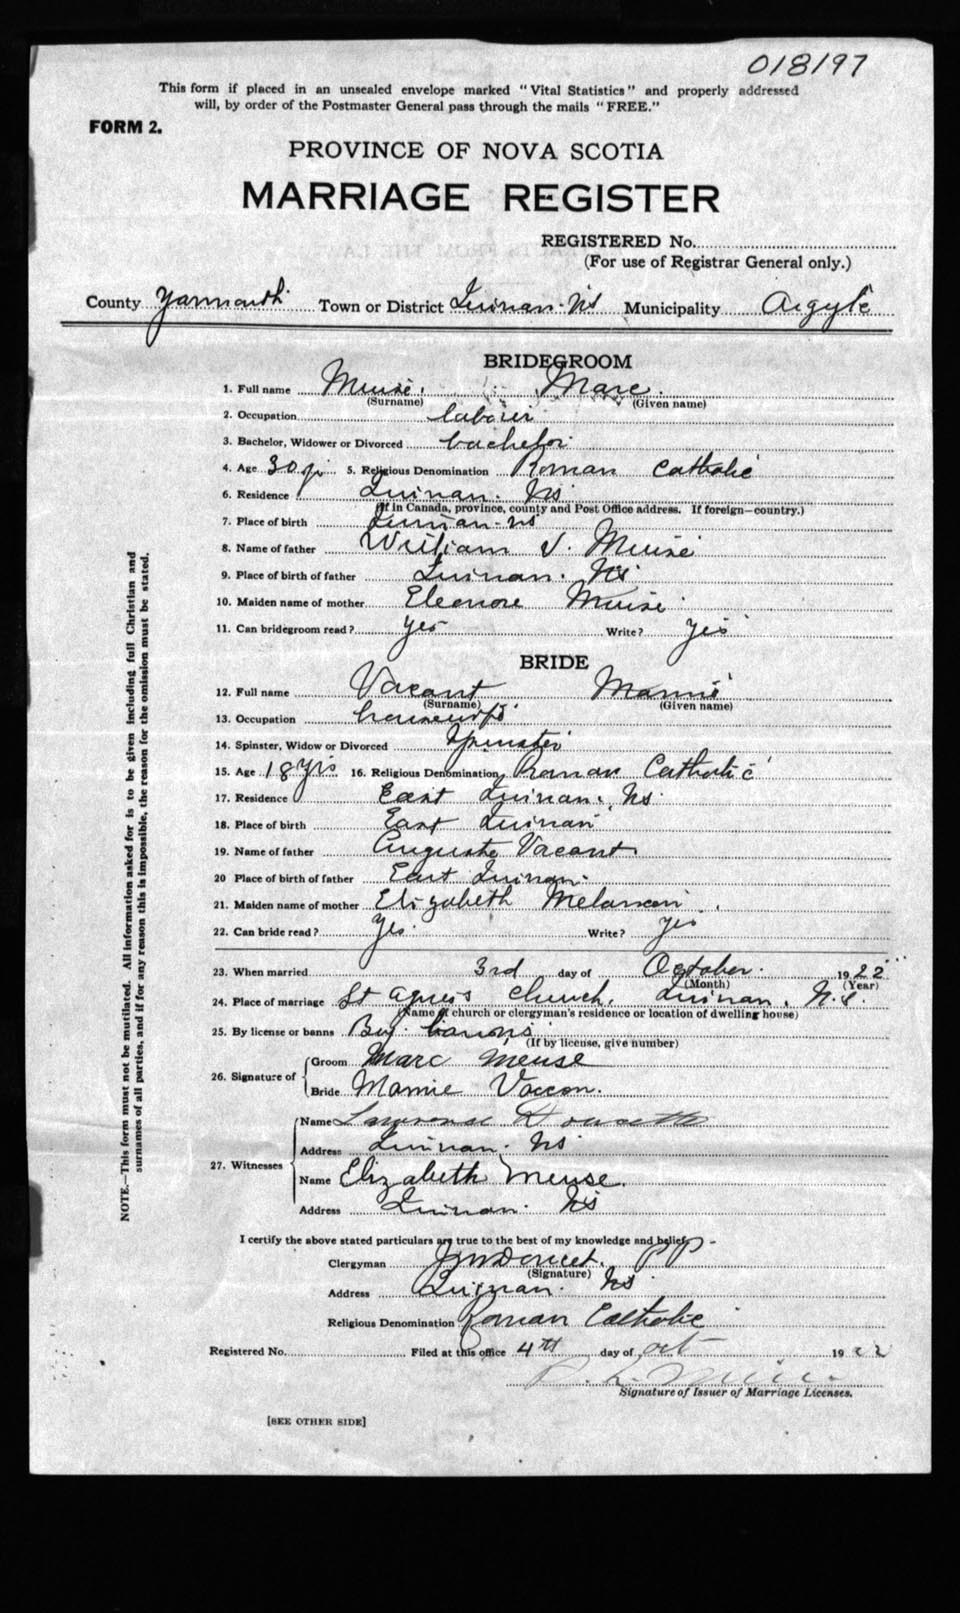 018197
This form if placed in an unsealed envelope marked "Vital Statistics" and properly addressed
will, by order of the Postmaster General pass through the mails "FREE."
FORM 2.
PROVINCE OF NOVA SCOTIA
MARRIAGE REGISTER
REGISTERED No.
(For use of Registrar General only.)
County Yarmouth Town or District Quinan. NS Municipality Argyle
BRIDEGROOM
1. Full name Muise. Marc.
(Surname) (Given name)
2. Occupation laborer
3. Bachelor, Widower or Divorced bachelor
4. Age 30 5. Religious Denomination Roman Catholic
6. Residence Quinan. NS
(If in Canada, province, county and Post Office address. If foreign—country.)
7. Place of birth Quinan - NS
8. Name of father William J. Muise
9. Place of birth of father Quinan. NS
10. Maiden name of mother Eleonore Muise
11. Can bridegroom read? yes Write? yes
BRIDE
12. Full name Vacant Mamie
(Surname) (Given name)
13. Occupation housewife
14. Spinster, Widow or Divorced Spinster
15. Age 18 yrs 16. Religious Denomination Roman Catholic
17. Residence East Quinan. NS.
18. Place of birth East Quinan
19. Name of father Auguste Vacant
20 Place of birth of father East Quinan.
21. Maiden name of mother Elizabeth Melanson
22. Can bride read? Yes. Write? yes
23. When married 3rd day of October. 1922
(Month) (Year)
24. Place of marriage St Agnes Church, Quinan, N.S.
(Name of church or clergyman's residence or location of dwelling house)
25. By license or banns By banns
(If by license, give number)
26. Signature of Groom Marc Meuse
Bride Mamie Vaccon.
27. Witnesses Name Lawrence Doucette
Address Quinan. NS
Name Elizabeth Meuse.
Address Quinan. NS
I certify the above stated particulars are true to the best of my knowledge and belief,
Clergyman Doucet. pp-
(Signature)
Address Quinan. NS
Religious Denomination Roman Catholic
Registered No. Filed at this office 4th day of Oct 1922
Signature of Issuer of Marriage Licenses.
[SEE OTHER SIDE]
NOTE.—This form must not be mutilated. All information asked for is to be given including full Christian and
surnames of all parties, and if for any reason this is impossible, the reason for the omission must be stated.